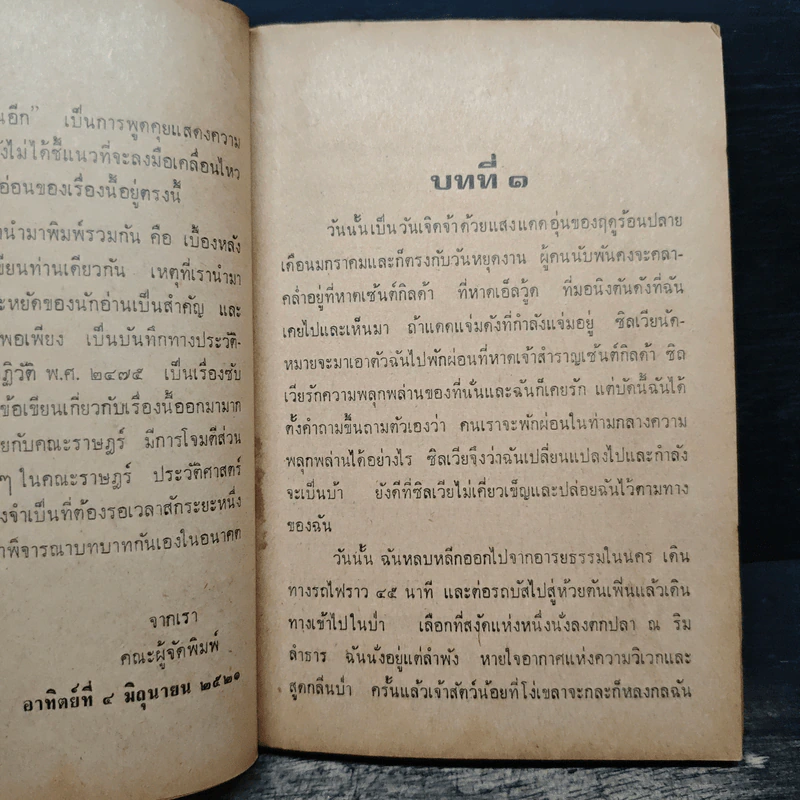 นอีก” เป็นการพูดคุยแสดงความ
ไม่ได้ชี้แนวที่จะลงมือเคลื่อนไหว
อ่อนของเรื่องนี้อยู่ตรงนี้
นำมาพิมพ์รวมกัน คือ เบื้องหลัง
เขียนท่านเดียวกัน เหตุที่เรานำมา
ะหยัดของนักอ่านเป็นสำคัญ และ
พอเพียง เป็นบันทึกทางประวัติ-
ฏิวัติ พ.ศ. ๒๔๗๕ เป็นเรื่องซับ
ข้อเขียนเกี่ยวกับเรื่องนี้ออกมามาก
ยกับคณะราษฎร์ มีการโจมตีส่วน
ๆ ในคณะราษฎร์ ประวัติศาสตร์
งจำเป็นที่ต้องรอเวลาสักระยะหนึ่ง
าพิจารณาบทบาทกันเองในอนาคต
จากเรา
คณะผู้จัดพิมพ์
อาทิตย์ที่ ๔ มิถุนายน ๒๕๒๑
บทที่ ๑
วันนั้นเป็นวันเจิดจ้าด้วยแสงแดดอุ่นของฤดูร้อนปลาย
เดือนมกราคมและก็ตรงกับวันหยุดงาน ผู้คนนับพันคงจะคลา-
คล่ำอยู่ที่หาดเซ้นต์กิลด้า ที่หาดเอ็ลวู้ด ที่มอนิงตันดังที่ฉัน
เคยไปและเห็นมา ถ้าแดดแจ่มดังที่กำลังแจ่มอยู่ ซิลเวียนัด-
หมายจะมาเอาตัวฉันไปพักผ่อนที่หาดเจ้าสำราญเซ้นต์กิลด้า ซิล
เวียรักความพลุกพล่านของที่นั่นและฉันก็เคยรัก แต่บัดนี้ฉันได้
ตั้งคำถามขึ้นถามตัวเองว่า คนเราจะพักผ่อนในท่ามกลางความ
พลุกพล่านได้อย่างไร ซิลเวียจึงว่าฉันเปลี่ยนแปลงไปและกำลัง
จะเป็นบ้า ยังดีที่ซิลเวียไม่เคี่ยวเข็ญและปล่อยฉันไว้ตามทาง
ของฉัน
วันนั้น ฉันหลบหลีกออกไปจากอารยธรรมในนคร เดิน
ทางรถไฟราว ๔๕ นาที และต่อรถบัสไปสู่ห้วยตันเพิ่นแล้วเดิน
ทางเข้าไปในป่า เลือกที่สงัดแห่งหนึ่งนั่งลงตกปลา ณ ริม
ลำธาร ฉันนั่งอยู่แต่ลำพัง หายใจอากาศแห่งความวิเวกและ
สูดกลิ่นป่า ครั้นแล้วเจ้าสัตว์น้อยที่โง่เขลาจะกละก็หลงกลฉัน